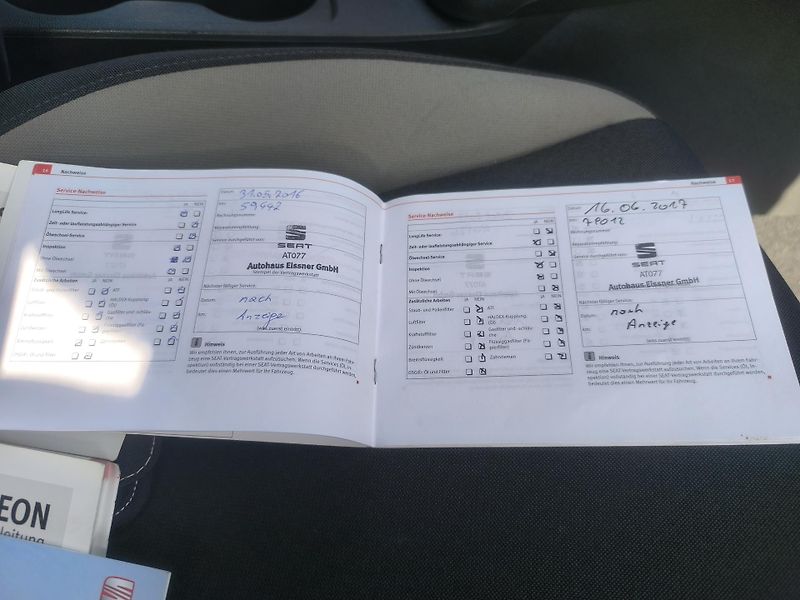 14 Nachweise
Service-Nachweise
JA NEIN
LongLife Service:
Zeit- oder laufleistungsabhängiger Service:
Ölwechsel-Service:
Inspektion
Ohne Ölwechsel
Mit Ölwechsel
Zusätzliche Arbeiten JA NEIN JA NEIN
Staub- und Pollenfilter ATF
Luftfilter HALDEX-Kupplung (Öl)
Kraftstofffilter
Zündkerzen
Bremsflüssigkeit
DSG®: Öl und Filter
Datum: 31.05.2016
km: 59.442
Rechnungsnummer:
Reparaturempfehlung:
Service durchgeführt von:
SEAT
AT077
Autohaus Eissner GmbH
Stempel der Vertragswerkstatt
Nächster fälliger Service:
Datum: nach
km: Anzeige
Hinweis
Wir empfehlen Ihnen, zur Ausführung jeder Art von Arbeiten an Ihrem Fahrzeug
eine SEAT-Vertragswerkstatt aufzusuchen. Wenn die Services (Öl, Inspektion)
vollständig bei einer SEAT-Vertragswerkstatt durchgeführt werden,
bedeutet dies einen Mehrwert für Ihr Fahrzeug.
Nachweise 17
Service-Nachweise
JA NEIN
LongLife Service:
Zeit- oder laufleistungsabhängiger Service:
Ölwechsel-Service:
Inspektion
Ohne Ölwechsel
Mit Ölwechsel
Zusätzliche Arbeiten JA NEIN JA NEIN
Staub- und Pollenfilter ATF
Luftfilter HALDEX-Kupplung (Öl)
Kraftstofffilter
Zündkerzen
Bremsflüssigkeit Zahnriemen
DSG®: Öl und Filter
Datum: 16.06.2017
km: 79012
Rechnungsnummer:
Reparaturempfehlung:
Service durchgeführt von:
SEAT
AT077
Autohaus Eissner GmbH
Nächster fälliger Service:
Datum: nach
km: Anzeige
Hinweis
Wir empfehlen Ihnen, zur Ausführung jeder Art von Arbeiten an Ihrem Fahrzeug
eine SEAT-Vertragswerkstatt aufzusuchen. Wenn die Services (Öl, Inspektion)
vollständig bei einer SEAT-Vertragswerkstatt durchgeführt werden,
bedeutet dies einen Mehrwert für Ihr Fahrzeug.
EON
leitung